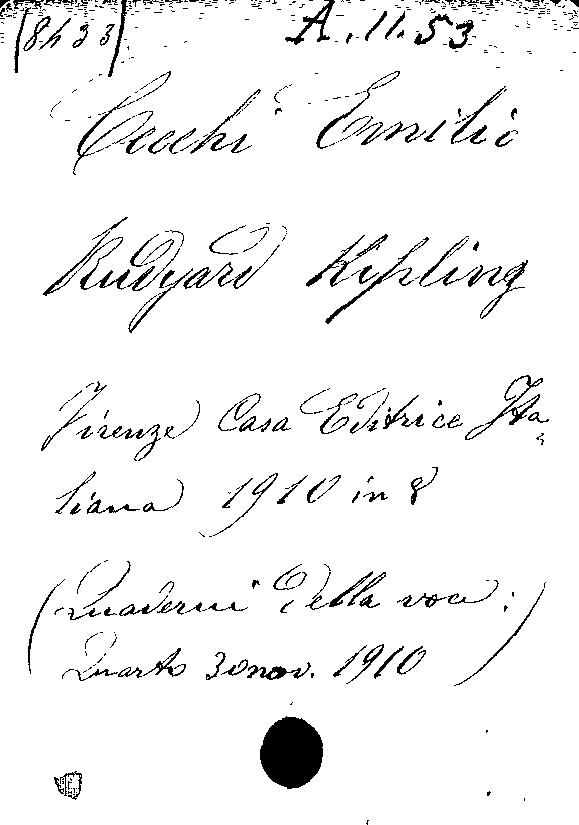 (8433) A.11.53
Cecchi Emilio
Rudyard Kipling
Firenze Casa Editrice Ita
liana 1910 in 8
(Quaderni della voce:
Quarto 30 nov. 1910)